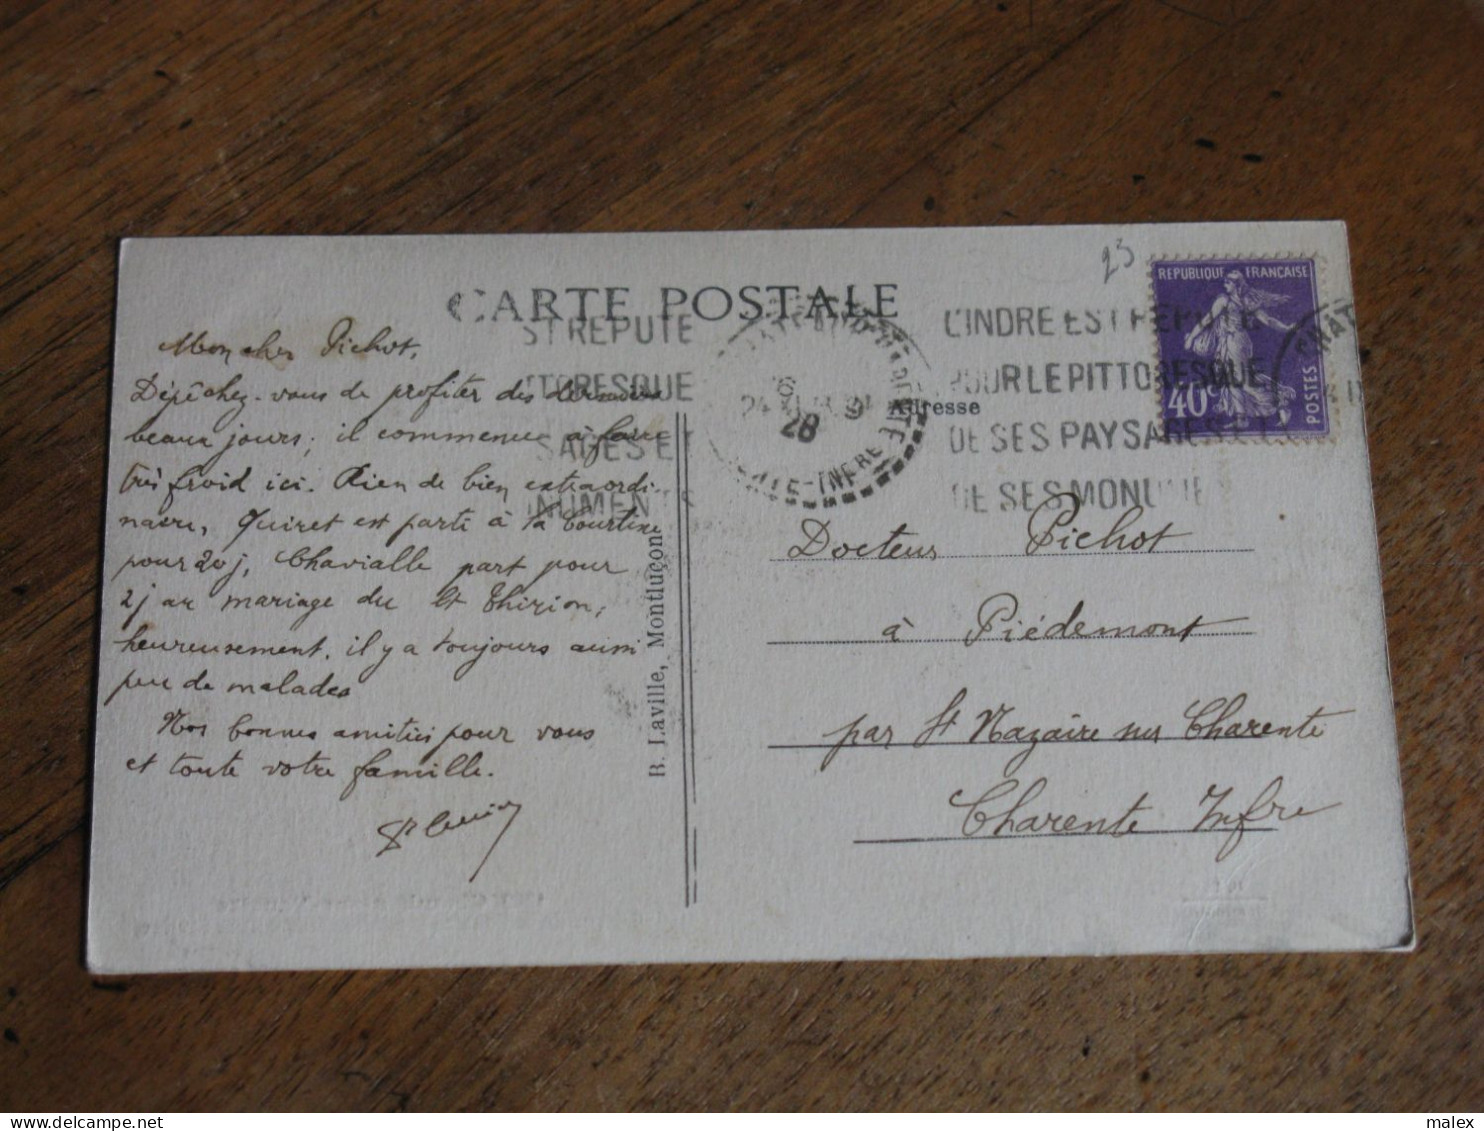 23
RÉPUBLIQUE FRANÇAISE
40c
POSTES
CARTE POSTALE
ST REPUTE
TTORESQUE
SAGES ET
NUMENTS
L'INDRE EST REPUTE
POUR LE PITTORESQUE
DE SES PAYSAGES ET
DE SES MONUME
28
Adresse
Mon cher Pichot,
Dépêchez-vous de profiter des derniers
beaux jours; il commence à faire
très froid ici. Rien de bien extraordi-
naire, Quiret est parti à la Courtine
pour 20j, Chavialle part pour
2j au mariage du Lt Thirion;
heureusement. il y a toujours aussi
peu de malades
Nos bonnes amitiés pour vous
et toute votre famille.
B. Laville, Montluçon
Docteur Pichot
à Piédemont
par St Nazaire sur Charente
Charente Infre
malex